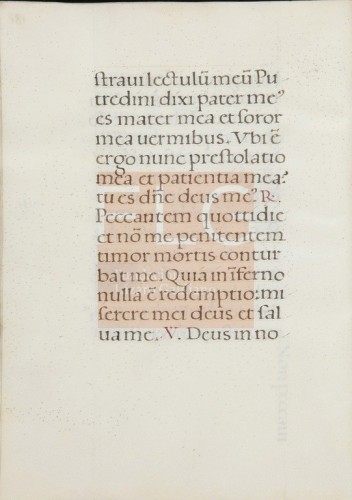 ſtraui lectulū meū Pu
tredini dixi pater meꝰ
es mater mea et soror
mea uermibus. Vbi ē
ergo nunc prestolatio
mea et patientia mea?
tu es dn̄e deus meꝰ ℞.
Peccantem quottidie
et nō me penitentem
timor mortis contur
bat me. Quia in īferno
nulla ē redemptio: mi
serere mei deus et sal
ua me. V. Deus in no